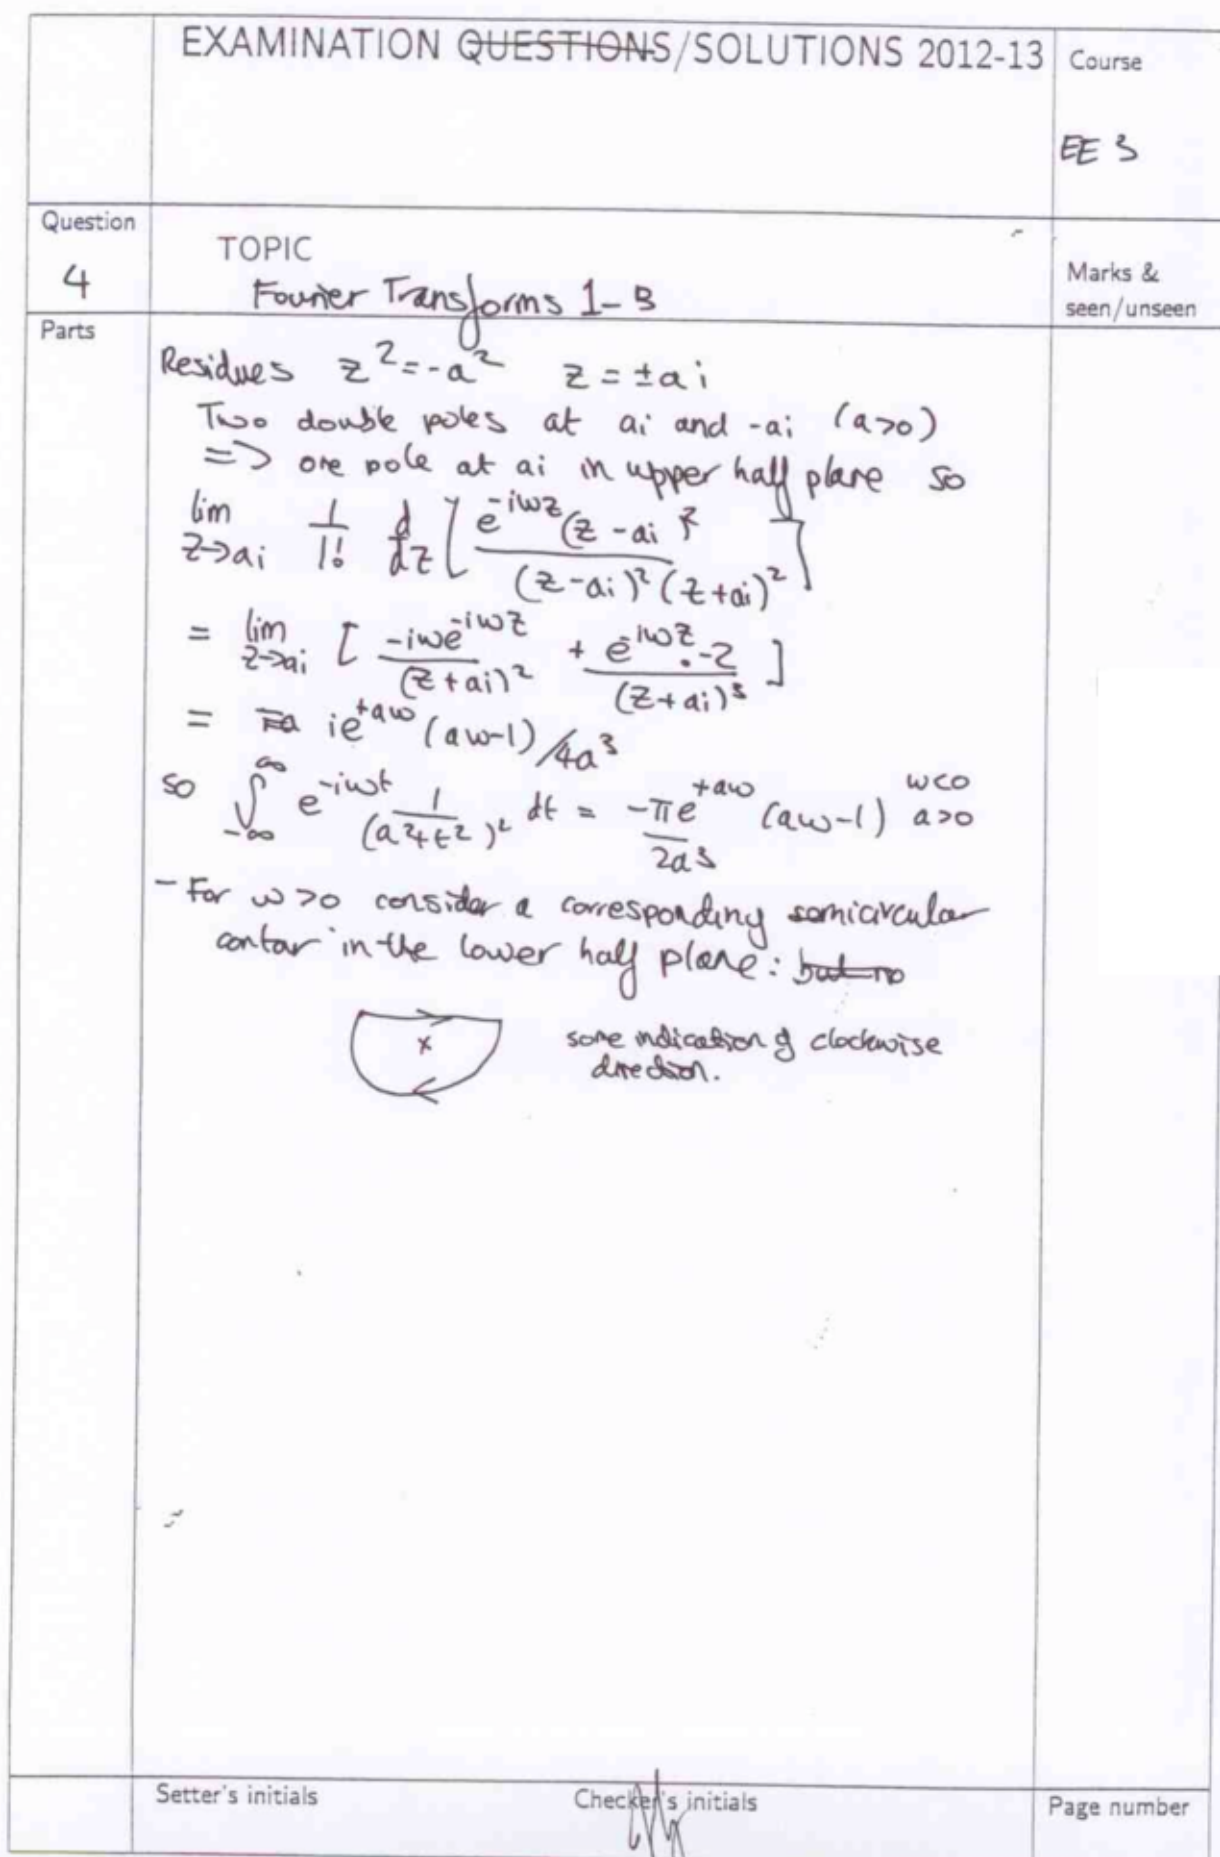 EXAMINATION QUESTIONS/SOLUTIONS 2012-13
Course
EE 3
Question
4
TOPIC
Fourier Transforms 1-B
Marks &
seen/unseen
Parts
Residues z² = -a² z = ±ai
Two double poles at ai and -ai (a>0)
=> one pole at ai in upper half plane so
lim z→ai 1/1! d/dz [ e^{-iωz}(z-ai)² / (z-ai)²(z+ai)² ]
= lim z→ai [ -iωe^{-iωz} / (z+ai)² + e^{-iωz}.-2 / (z+ai)³ ]
= ie^{+aω}(aω-1)/4a³
so ∫_{-∞}^{∞} e^{-iωt} 1/(a²+t²)² dt = -πe^{+aω}/2a³ (aω-1) ω<0 a>0
- For ω>0 consider a corresponding semicircular
contour in the lower half plane: but no
x
some indication of clockwise
direction.
Setter's initials
Checker's initials
Page number